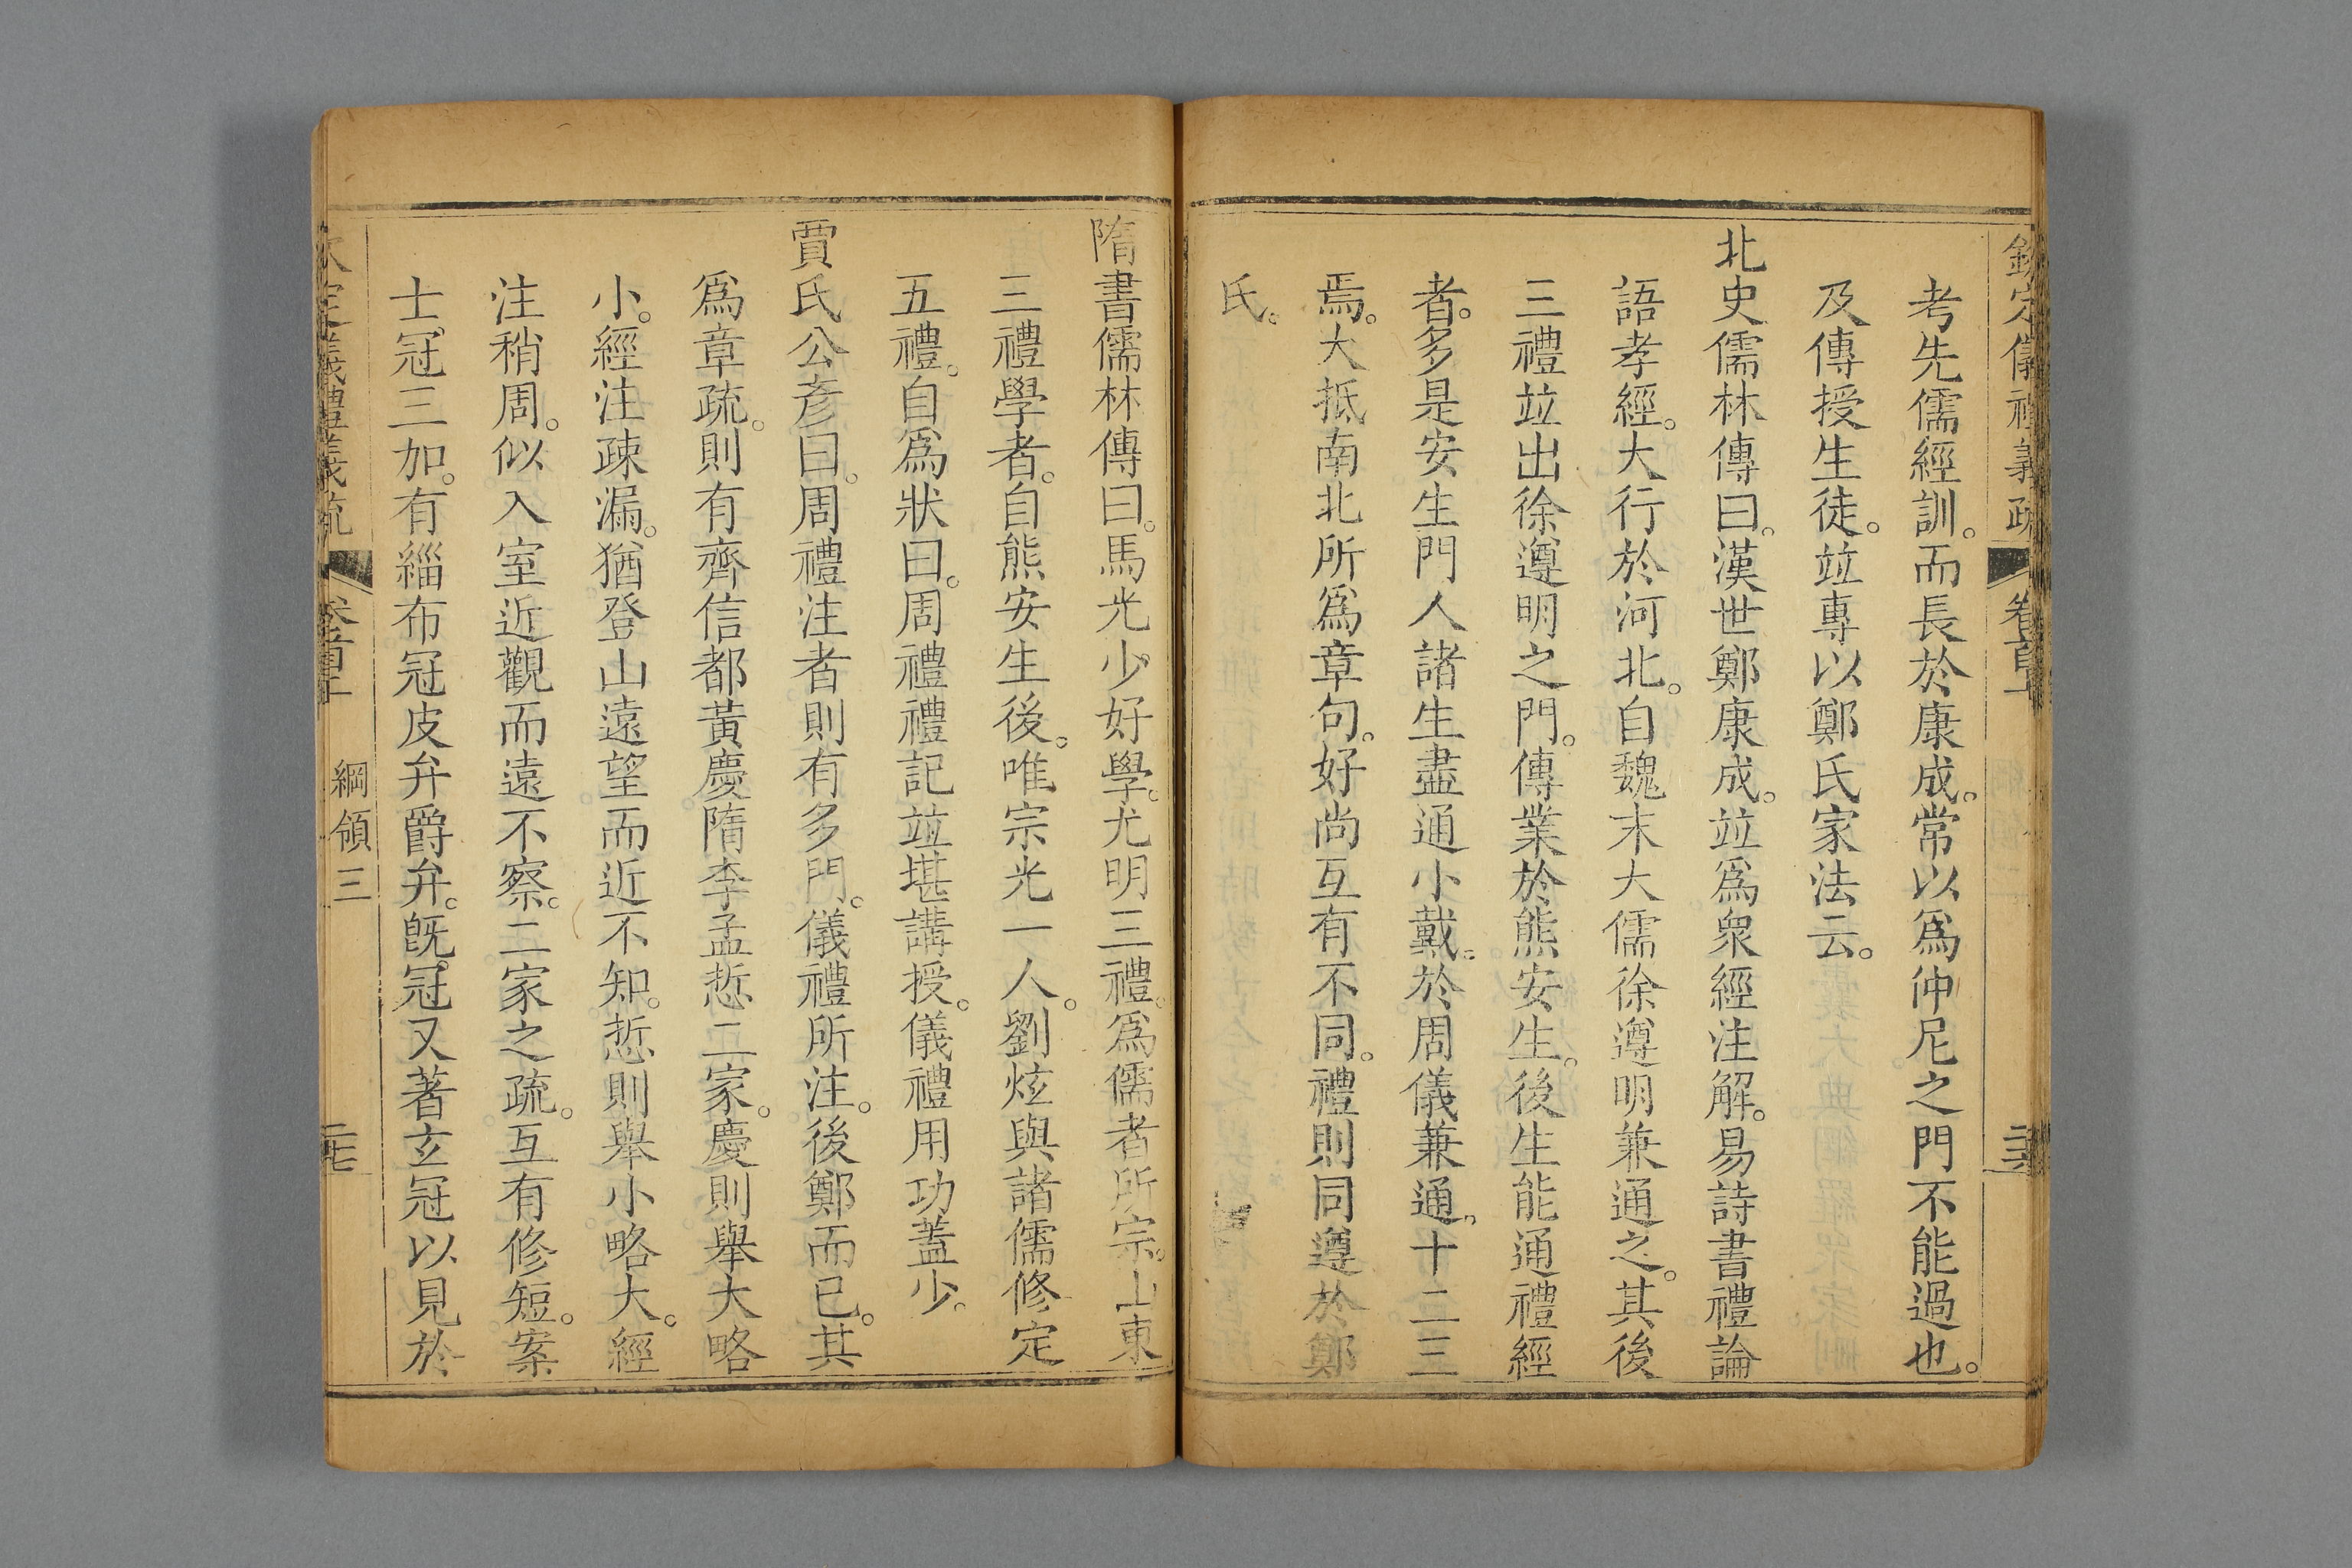 欽定儀禮義疏 卷首上 二十六
考先儒經訓。而長於康成。常以爲仲尼之門不能過也。
及傳授生徒。竝專以鄭氏家法云。
北史儒林傳曰。漢世鄭康成。竝爲衆經注解。易詩書禮論
語孝經。大行於河北。自魏末大儒徐遵明兼通之。其後
三禮竝出徐遵明之門。傳業於熊安生。後生能通禮經
者。多是安生門人諸生盡通小戴。於周儀兼通。十二三
焉。大抵南北所爲章句。好尚互有不同。禮則同遵於鄭
氏。
隋書儒林傳曰。馬光少好學。尤明三禮。爲儒者所宗。山東
三禮學者。自熊安生後。唯宗光一人。劉炫與諸儒修定
五禮。自爲狀曰。周禮禮記竝堪講授。儀禮用功蓋少。
賈氏公彥曰。周禮注者則有多門。儀禮所注。後鄭而已。其
爲章疏。則有齊信都黃慶隋李孟悊二家。慶則舉大略
小。經注疎漏。猶登山遠望而近不知。悊則舉小略大。經
注稍周。似入室近觀而遠不察。二家之疏。互有修短。案
士冠三加。有緇布冠皮弁爵弁。旣冠又著玄冠以見於
欽定儀禮義疏 卷首上 綱領三 二十七